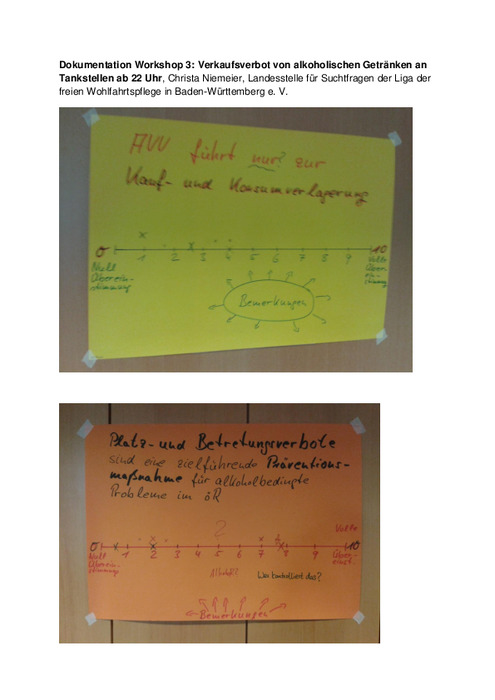 Dokumentation Workshop 3: Verkaufsverbot von alkoholischen Getränken an
Tankstellen ab 22 Uhr, Christa Niemeier, Landesstelle für Suchtfragen der Liga der
freien Wohlfahrtspflege in Baden-Württemberg e. V.
AVV führt nur? zur
Kauf- und Konsumverlagerung
0 1 2 3 4 5 6 7 8 9 10
Null
Überein-
stimmung
Volle
Über-
ein-
stimmung
Bemerkungen
Platz- und Betretungsverbote
sind eine zielführende Präventions-
maßnahme für alkoholbedingte
Probleme im öR
?
Volle
0 1 2 3 4 5 6 7 8 9 10
Null
Überein-
stimmung
Über-
einst.
Wer kontrolliert das?
Bemerkungen